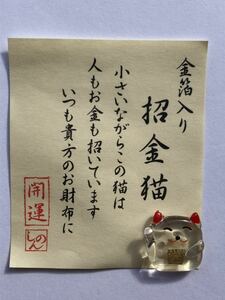 金箔入り
招金猫
小さいながらこの猫は
人もお金も招いています
いつも貴方のお財布に
開運